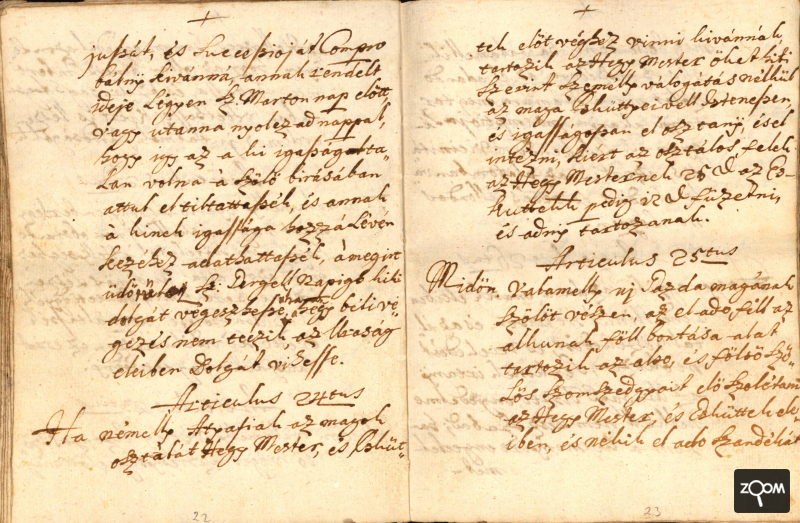 jussát, és Successioját Compro
bálny kivánná, annak rendelt
ideje Légyen Sz. Marton nap elött
vagy utanna nyolczad nappal,
hogy igy az a ki igasságatta„
lan volna à Szölö birásában
attul el tiltattassék, és annak
à kinek igassága hozzá Lévén
kezéhez adattattassék, à megirt
üdötül Sz. Gergell Napigh kiki
dolgát végezhesse, à hegy béli vé„
gezés nem teczik, az Uraság
eleiben Dolgát vihesse.
Articulus 24tus
Ha némelly Atyafiak az magok
osztálát Hegy Mester, és Esküt„
22
tek elöt véghez vinni kivánnák,
tartozik az Hegy Mester öket hiti
Szerint Személly válogatás nélkül
az maga Esküttyeivell Istenessen,
és igasságossan el osztany, és el
intézni, kiért az osztálos felek
az Hegy Mesternek 25 d az Es„
kuttekk pedig 12 d füzetni,
és adny tartozanak.
Articulus 25tus
Midön Valamelly uj Gazda magának
Szölöt vészen, az el adó fell az
alkunak föll bontása alat
tartozik az alsó, és fölsö Szö„
lös Szomszedgyait elö Szolétani
az Hegy Mester, és Esküttek ele„
iben, és nékik el adó Szandékát
23
ZOOM